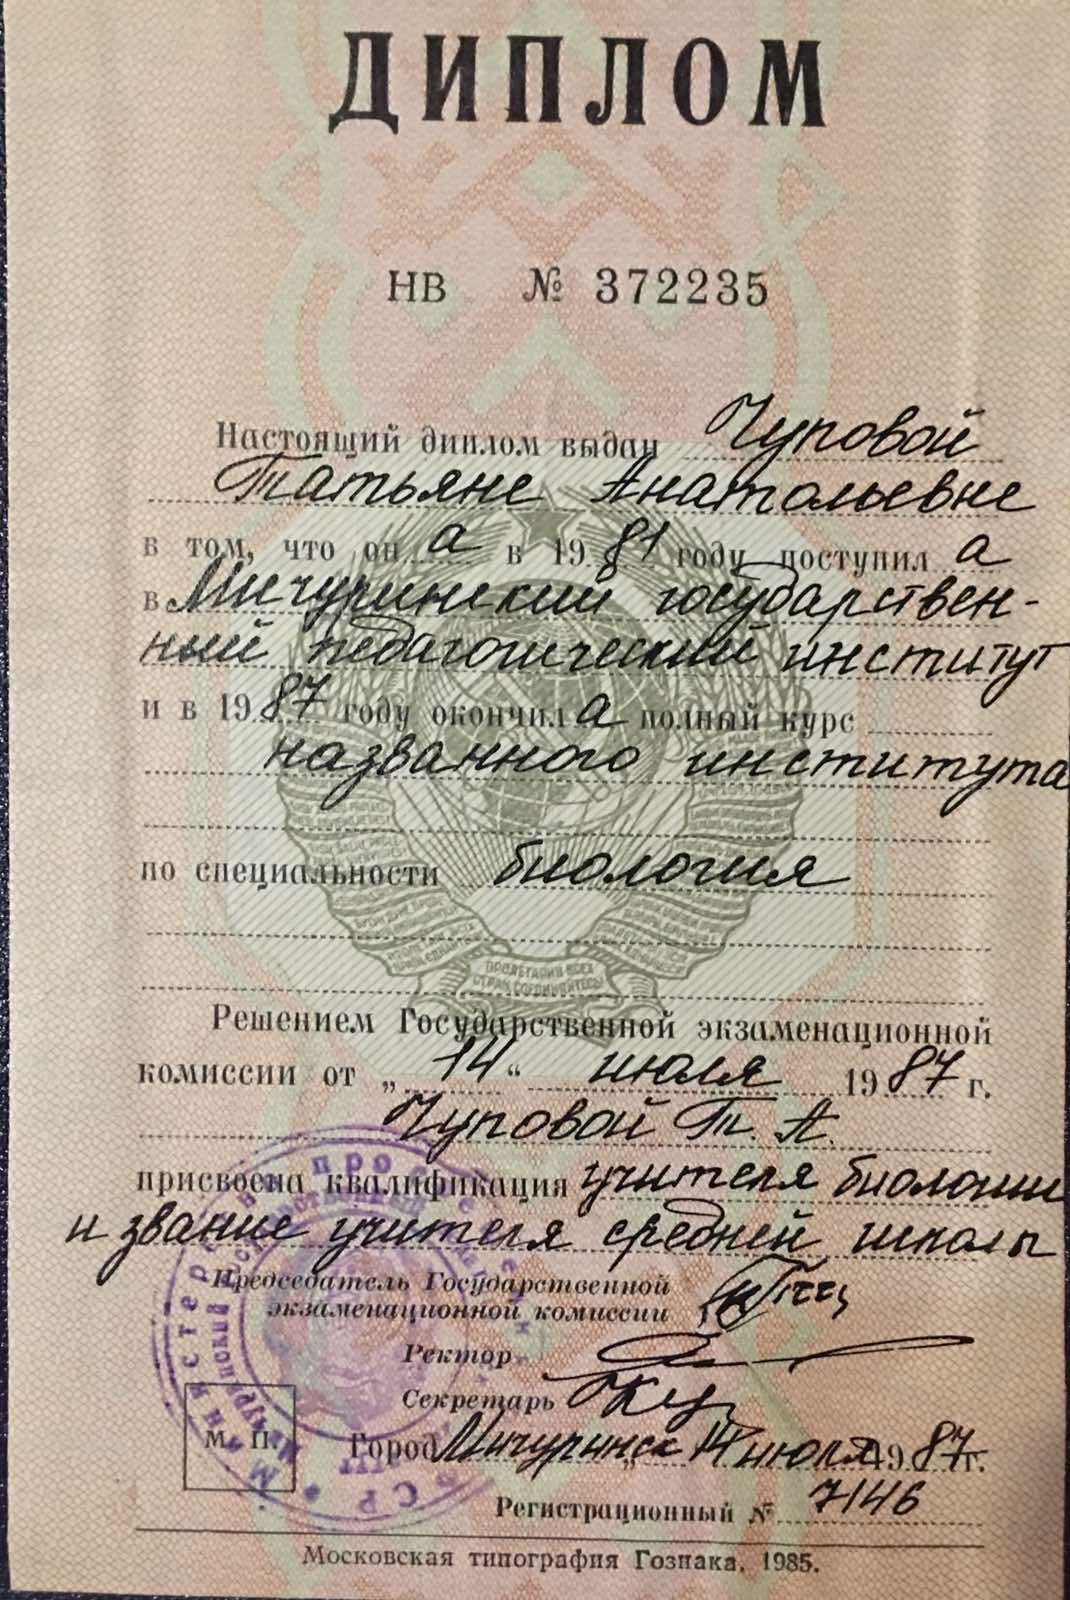 ДИПЛОМ
НВ № 372235
Настоящий диплом выдан Чуповой
Татьяне Анатольевне
в том, что он а в 1981 году поступил а
в Мичуринский государствен-
ный педагогический институт
и в 1987 году окончил а полный курс
названного института
по специальности биология
ПРОЛЕТАРИИ ВСЕХ
СТРАН, СОЕДИНЯЙТЕСЬ!
Решением Государственной экзаменационной
комиссии от „14“ июля 1987 г.
Чуповой Т. А.
присвоена квалификация учителя биологии
и звание учителя средней школы
Председатель Государственной
экзаменационной комиссии
Ректор
Секретарь
М. П.
Город Мичуринск 14 июля 1987 г.
Регистрационный № 7146
Московская типография Гознака. 1985.